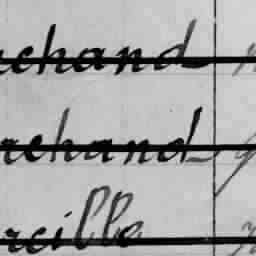 rchand
rchand
rcille